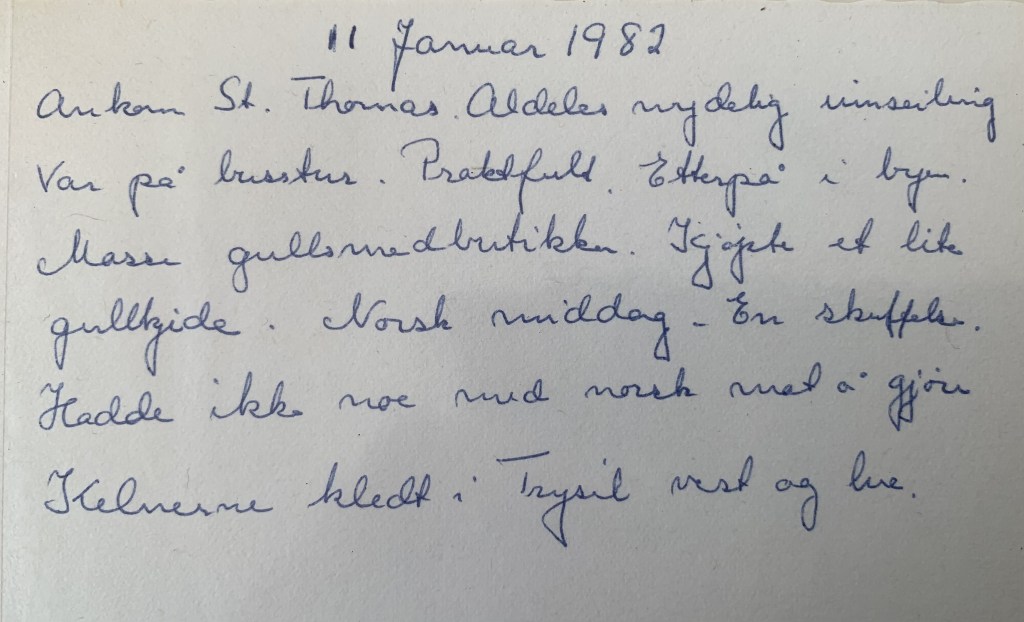 11 Januar 1982
Ankom St. Thomas. Aldeles nydelig innseiling
Var på busstur. Praktfult. Etterpå i byen.
Masse gullsmedbutikker. Kjøpte et lite
gullkjede. Norsk middag - En skuffelse.
Hadde ikke noe med norsk mat å gjøre
Kelnerne kledt i Trysil vest og lue.